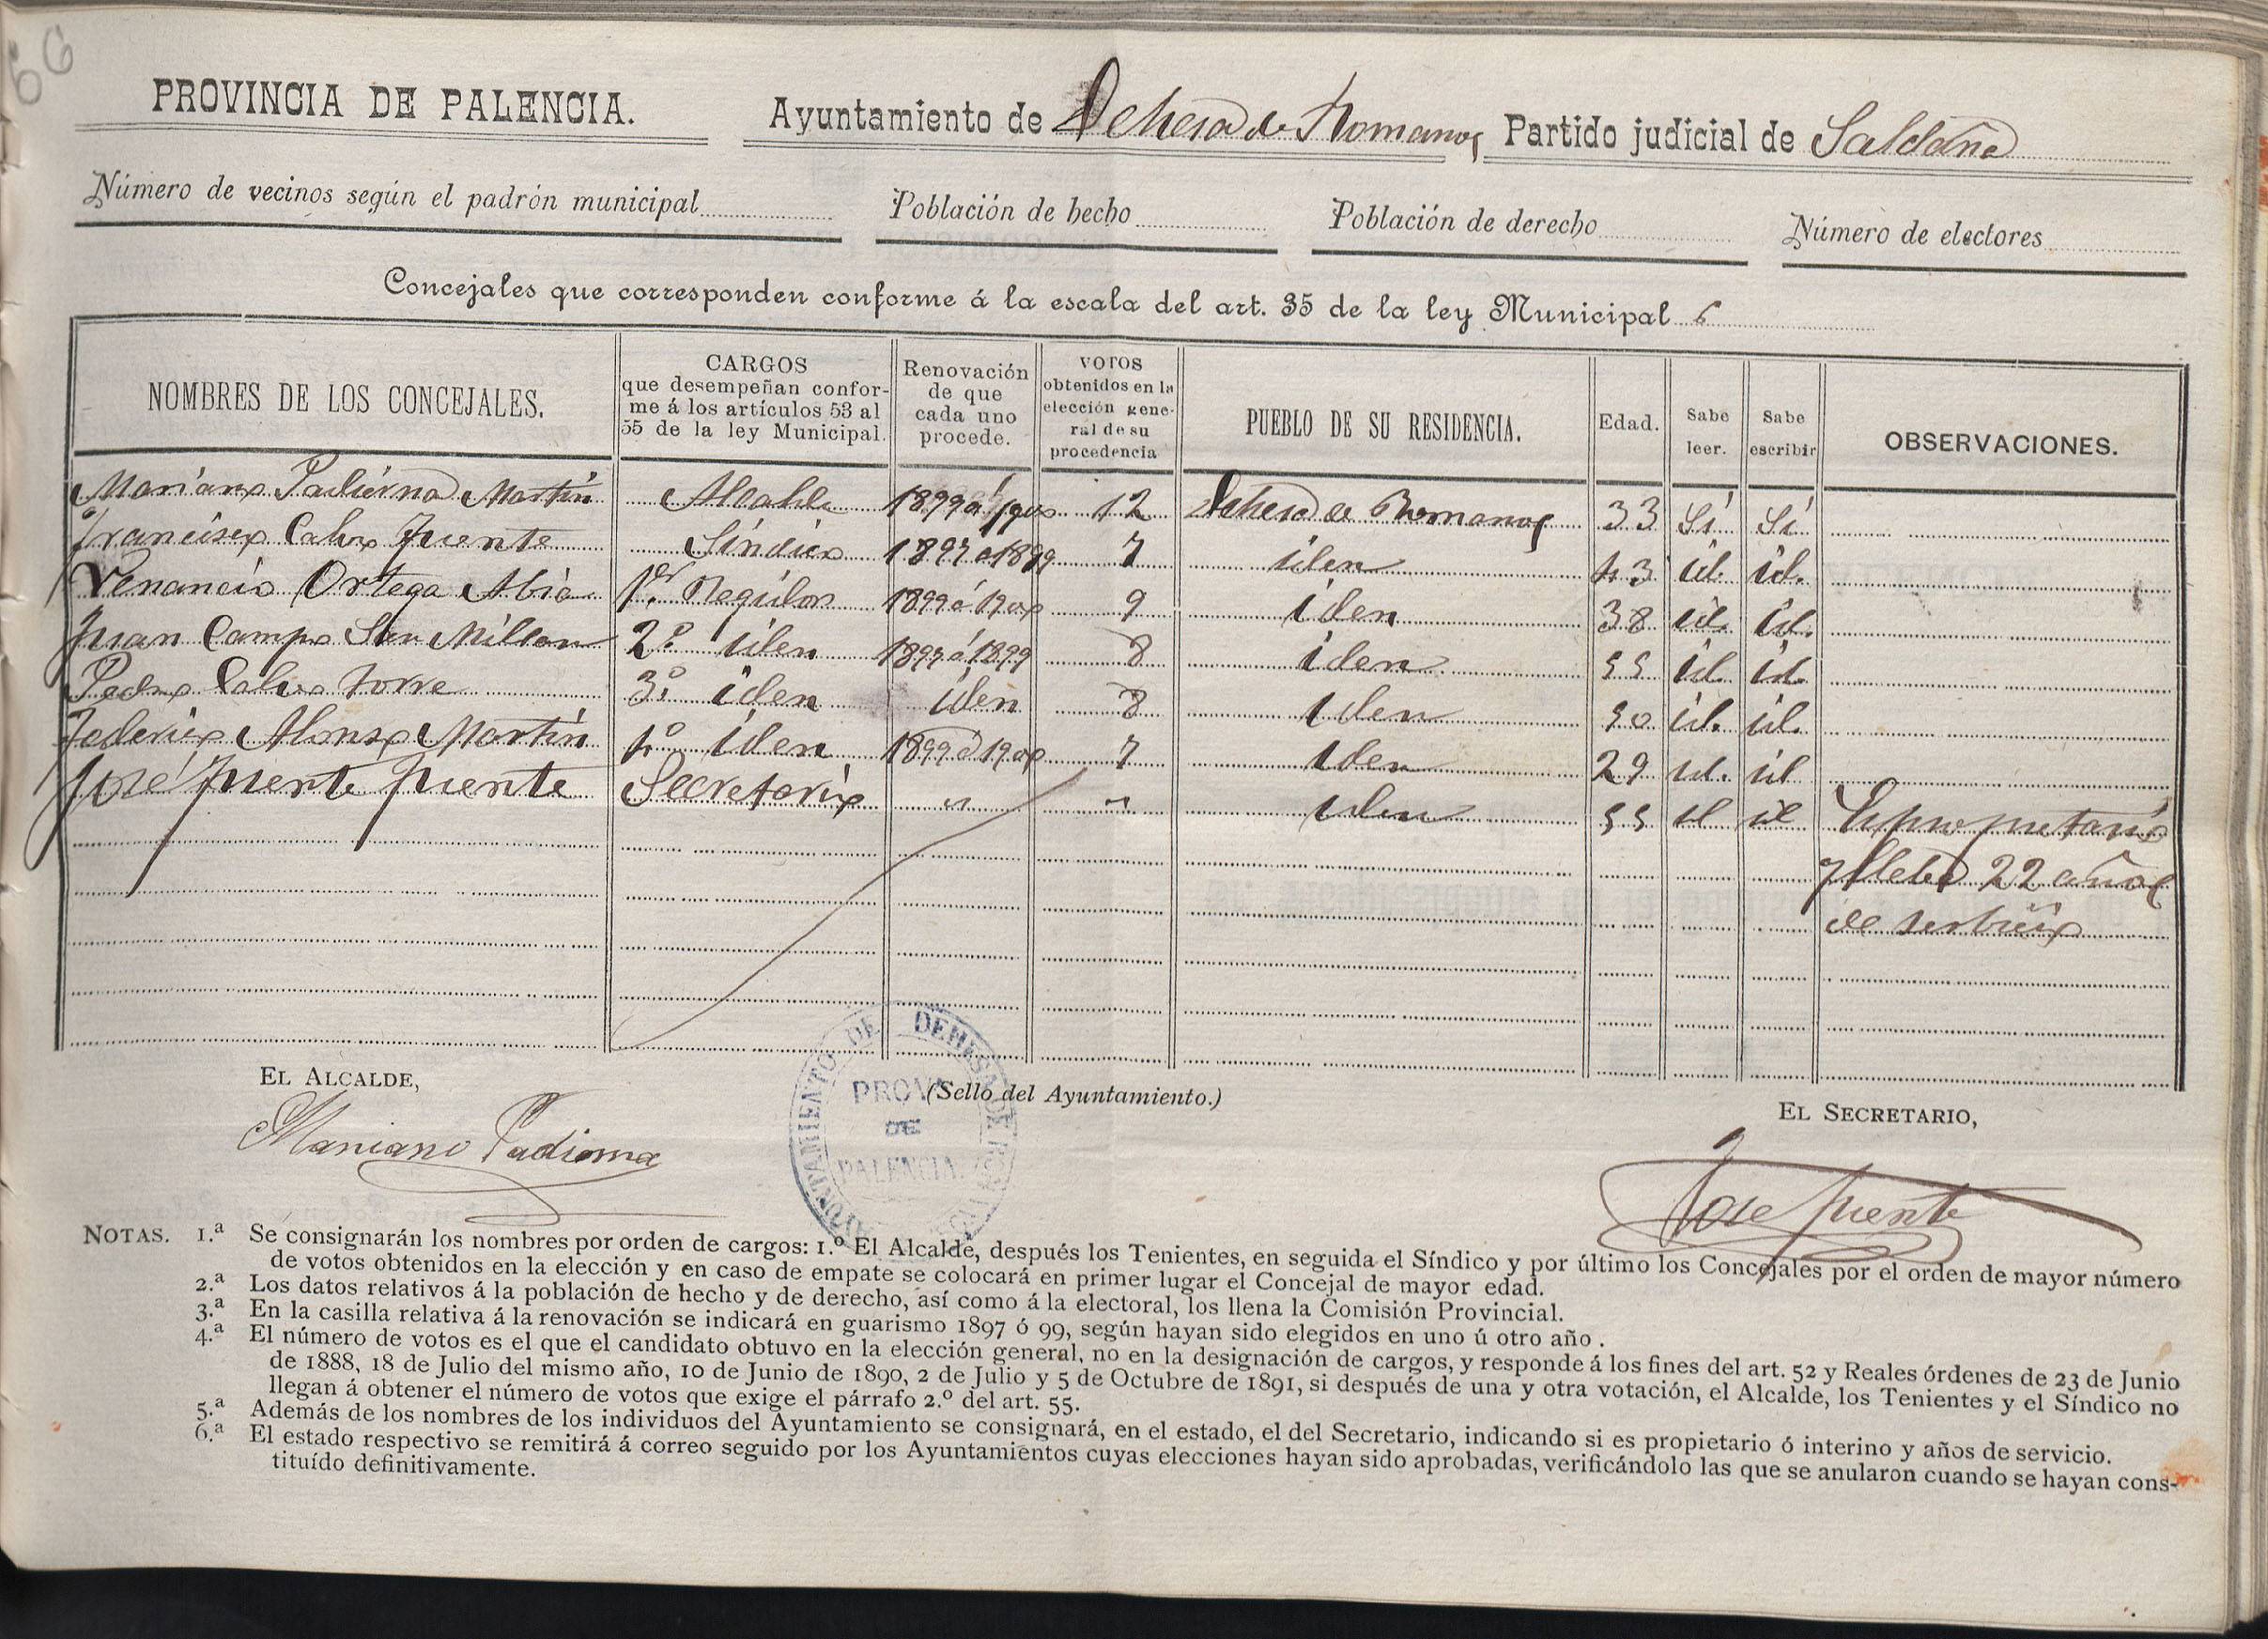 66
PROVINCIA DE PALENCIA. Ayuntamiento de Dehesa de Romanos Partido judicial de Saldaña
Número de vecinos según el padrón municipal Población de hecho Población de derecho Número de electores
Concejales que corresponden conforme á la escala del art. 35 de la ley Municipal 6
NOMBRES DE LOS CONCEJALES. CARGOS que desempeñan conforme á los artículos 53 al 55 de la ley Municipal. Renovación de que cada uno procede. VOTOS obtenidos en la elección general de su procedencia PUEBLO DE SU RESIDENCIA. Edad. Sabe leer. Sabe escribir OBSERVACIONES.
Mariano Padierna Martin Alcalde 1899 á 12 Dehesa de Romanos 33 Sí Sí
Francisco Calvo Fuente Síndico 1897 á 1899 7 iden 43 id. id.
Venancio Ortega Abia 1er. Regidor 1899 á 9 iden 38 id. id.
Juan Campo San Millan 2º iden 1897 á 1899 8 iden 55 id. id.
Pedro Calvo Torre 3º iden iden 8 iden 50 id. id.
Federico Alonso Martin 4º iden 1899 á 7 iden 29 id. id
José Fuente Fuente Secretario " " iden 55 id id Es propietario
y lleba 22 años
de serbicio
EL ALCALDE,
Mariano Padierna
AYUNTAMIENTO DE DEHESA DE ROMANOS
PROVA DE PALENCIA.
(Sello del Ayuntamiento.)
EL SECRETARIO,
Jose Fuente
NOTAS. 1.ª Se consignarán los nombres por orden de cargos: 1.º El Alcalde, después los Tenientes, en seguida el Síndico y por último los Concejales por el orden de mayor número
de votos obtenidos en la elección y en caso de empate se colocará en primer lugar el Concejal de mayor edad.
2.ª Los datos relativos á la población de hecho y de derecho, así como á la electoral, los llena la Comisión Provincial.
3.ª En la casilla relativa á la renovación se indicará en guarismo 1897 ó 99, según hayan sido elegidos en uno ú otro año .
4.ª El número de votos es el que el candidato obtuvo en la elección general, no en la designación de cargos, y responde á los fines del art. 52 y Reales órdenes de 23 de Junio
de 1888, 18 de Julio del mismo año, 10 de Junio de 1890, 2 de Julio y 5 de Octubre de 1891, si después de una y otra votación, el Alcalde, los Tenientes y el Síndico no
llegan á obtener el número de votos que exige el párrafo 2.º del art. 55.
5.ª Además de los nombres de los individuos del Ayuntamiento se consignará, en el estado, el del Secretario, indicando si es propietario ó interino y años de servicio.
6.ª El estado respectivo se remitirá á correo seguido por los Ayuntamientos cuyas elecciones hayan sido aprobadas, verificándolo las que se anularon cuando se hayan cons-
tituído definitivamente.